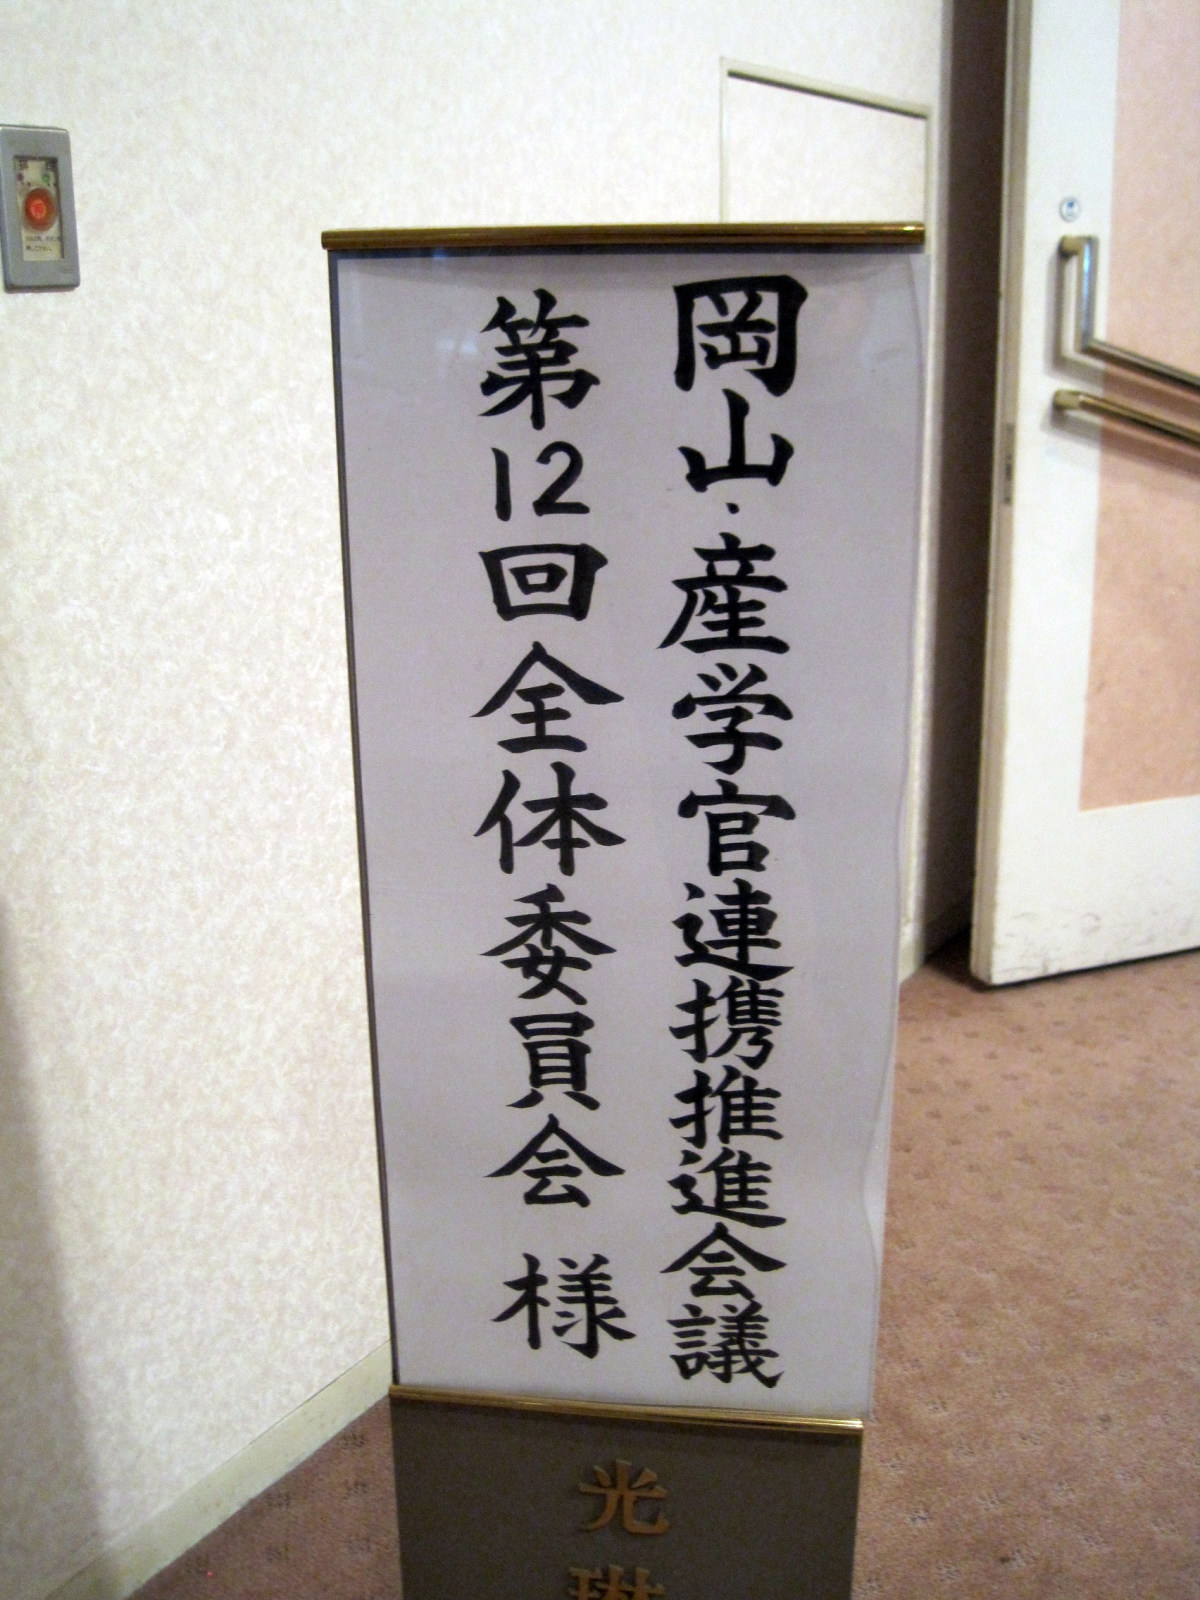 岡山・産学官連携推進会議
第12回全体委員会 様
光琳